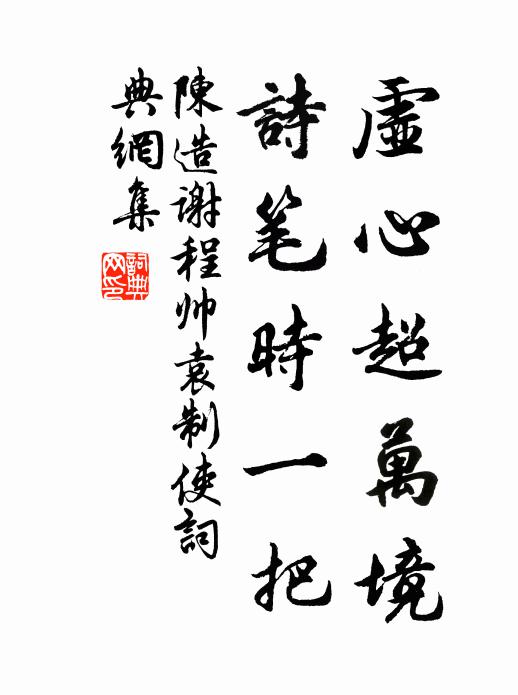 虛心超萬境
詩笔時一把
陳造谢程帅袁制使詞
典網集
詞典
网印